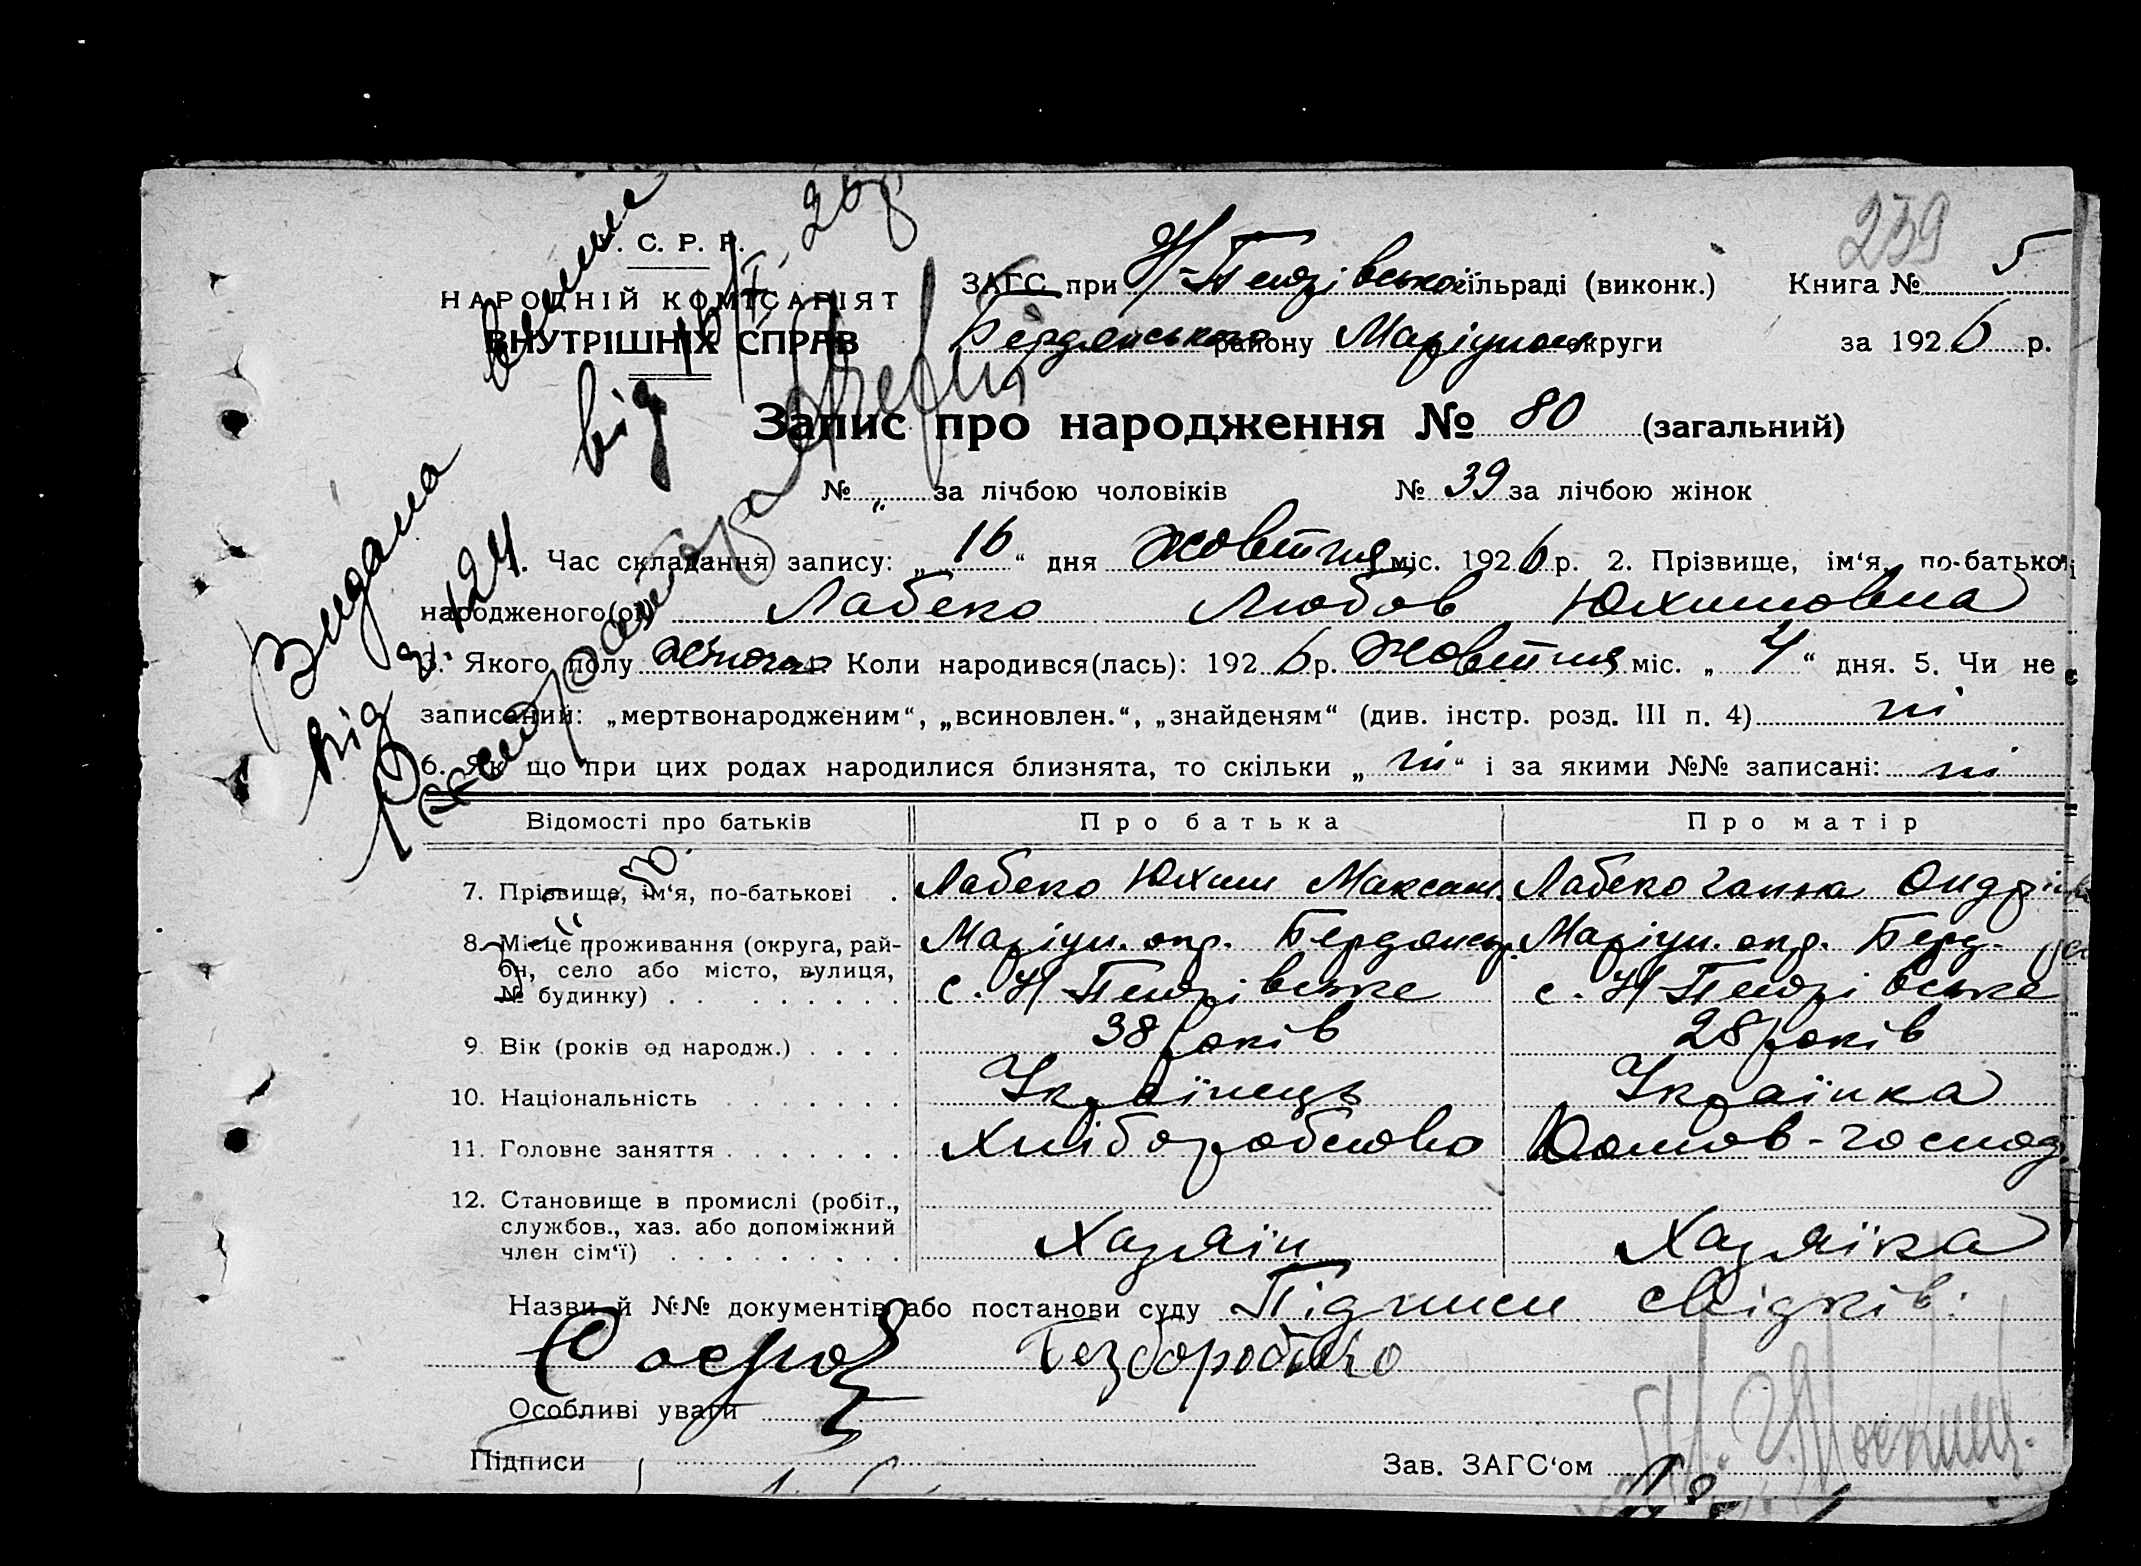 239
У. С. Р. Р.
НАРОДНІЙ КОМІСАРІЯТ
ВНУТРІШНІХ СПРАВ
ЗАГС при сільраді (виконк.) Книга № 5
Бердянського району Маріупол округи за 1926 р.
Запис про народження № 80 (загальний)
№ „ за лічбою чоловіків № 39 за лічбою жінок
1. Час складання запису: „16“ дня жовтня міс. 1926 р. 2. Прізвище, ім‘я, по-батькові
народженого(ої) Лабеко Любов Юхимовна
3. Якого полу жіночої 4. Коли народився(лась): 1926 р. жовтня міс. „4“ дня. 5. Чи не є
записаний: „мертвонародженим“, „всиновлен.“, „знайденям“ (див. інстр. розд. III п. 4) ні
6. Як що при цих родах народилися близнята, то скільки „ні“ і за якими №№ записані: ні
Відомості про батьків Про батька Про матір
7. Прізвище, ім‘я, по-батькові . Лабеко Юхим Максим. Лабеко Ганна Ондрії
8. Місце проживання (округа, рай- Маріуп. окр. Бердянськ. Маріуп. окр. Берд.
он, село або місто, вулиця,
№ будинку) с. с.
9. Вік (років од народж.) 38 років 28 років
10. Національність Українець Українка
11. Головне заняття Хліборобство Домов-господ.
12. Становище в промислі (робіт.,
службов., хаз. або допоміжний
член сім‘ї) Хазяїн Хазяїка
Назви й №№ документів або постанови суду Підписи свідків:
Безбородько
Особливі уваги
Підписи Зав. ЗАГС‘ом
Видана
від